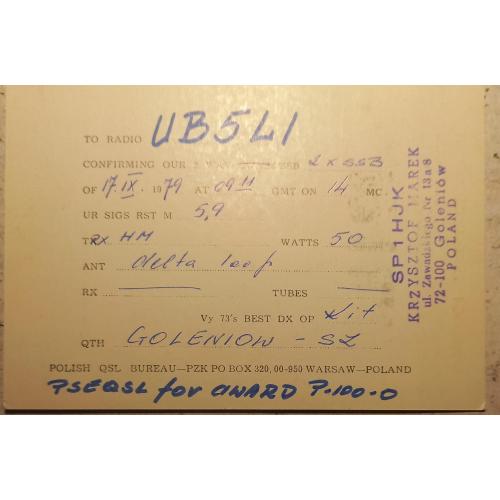 TO RADIO UB5LI
CONFIRMING OUR 2 WAY SSB 2xSSB
OF 17.IX. 1979 AT 0911 GMT ON 14 MC.
UR SIGS RST M 5,9
TRX HM WATTS 50
ANT delta loop
RX TUBES
Vy 73's BEST DX OP Kit
QTH GOLENIOW - SZ
POLISH QSL BUREAU—PZK PO BOX 320, 00-950 WARSAW—POLAND
PSEQSL for AWARD P-100-O
SP1HJK
KRZYSZTOF MAREK
ul. Zawadzkiego Nr 13a8
72-100 Goleniów
POLAND